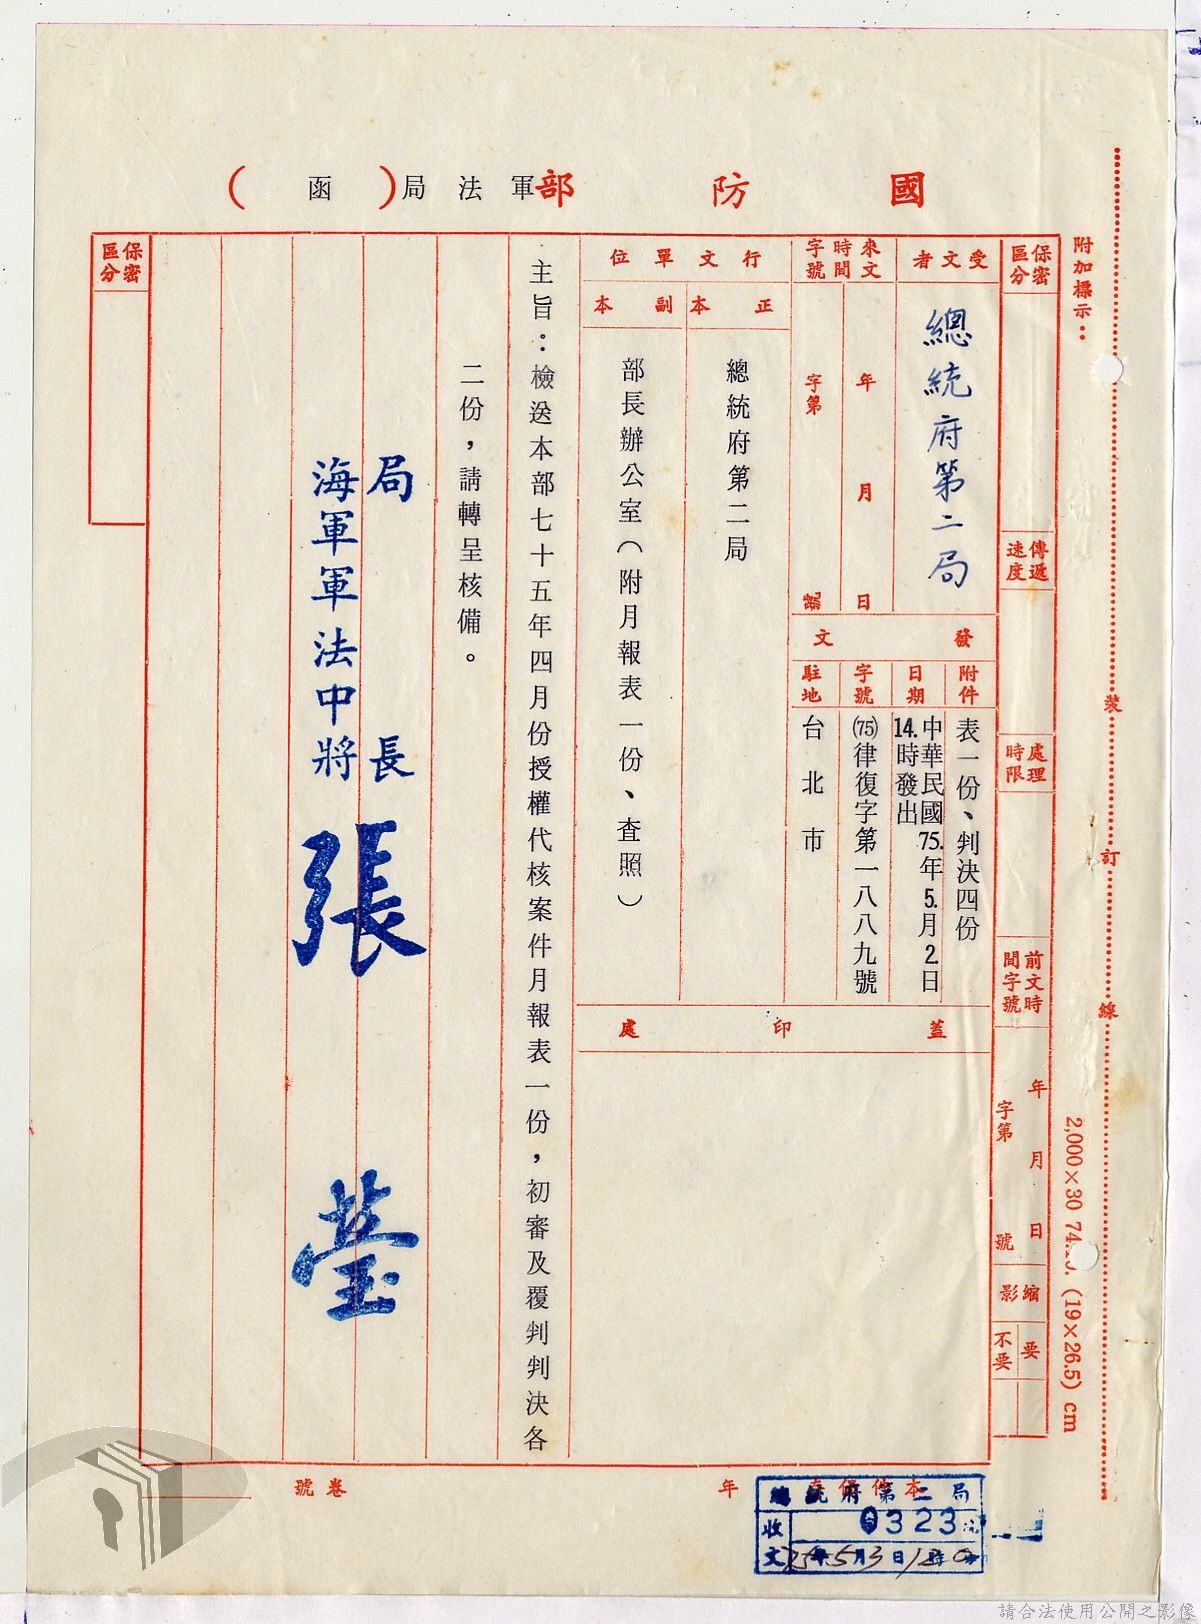 國防部軍法局(函)
附加標示：
裝訂線
2,000×30 (19×26.5) cm
保密區分
傳遞速度
處理時限
前文時間字號
年月日
字第號
縮影
要
不要
受文者
總統府第二局
來文時間字號
年月日
字第號
發文
附件
表一份、判決四份
日期
中華民國75.年5.月2.日
14.時發出
字號
(75)律復字第一八八九號
駐地
台北市
行文單位
正本
總統府第二局
副本
部長辦公室（附月報表一份、查照）
蓋印處
主旨：檢送本部七十五年四月份授權代核案件月報表一份，初審及覆判判決各
二份，請轉呈核備。
局長
海軍軍法中將
張
保密區分
本件保存年
卷號
總統府第二局
收文
0323
75年5月3日
請合法使用公開之影像